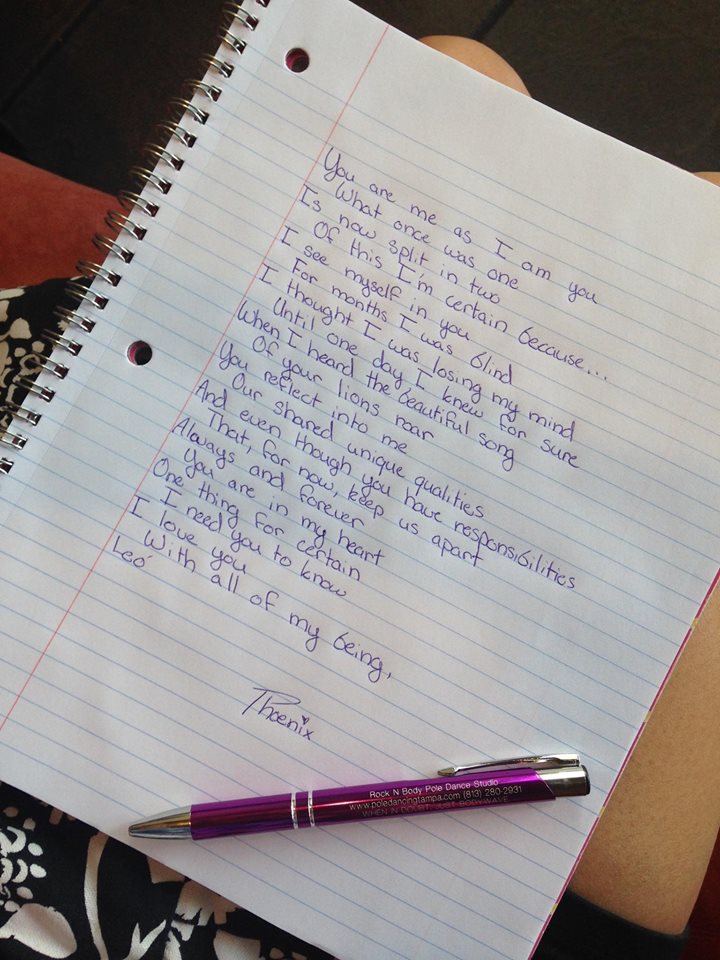 You are me as I am you
What once was one
Is now split in two
Of this I'm certain because...
I see myself in you
For months I was blind
I thought I was losing my mind
Until one day I knew for sure
When I heard the beautiful song
Of your lions roar
You reflect into me
Our shared unique qualities
And even though you have responsibilities
That, for now, keep us apart
Always and forever
You are in my heart
One thing for certain
I need you to know
I love you
With all of my being,
Leo
Phoenix
Rock N Body Pole Dance Studio
www.poledancingtampa.com (813) 280-2931
WHEN IN DOUBT, JUST BODY WAVE